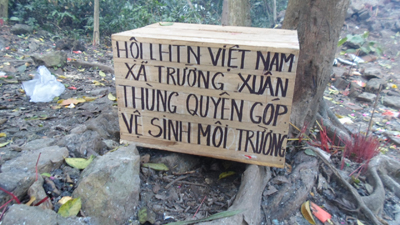 HỘI LHTN VIỆT NAM
XÃ TRƯỜNG XUÂN
THÙNG QUYÊN GÓP
VỆ SINH MÔI TRƯỜNG